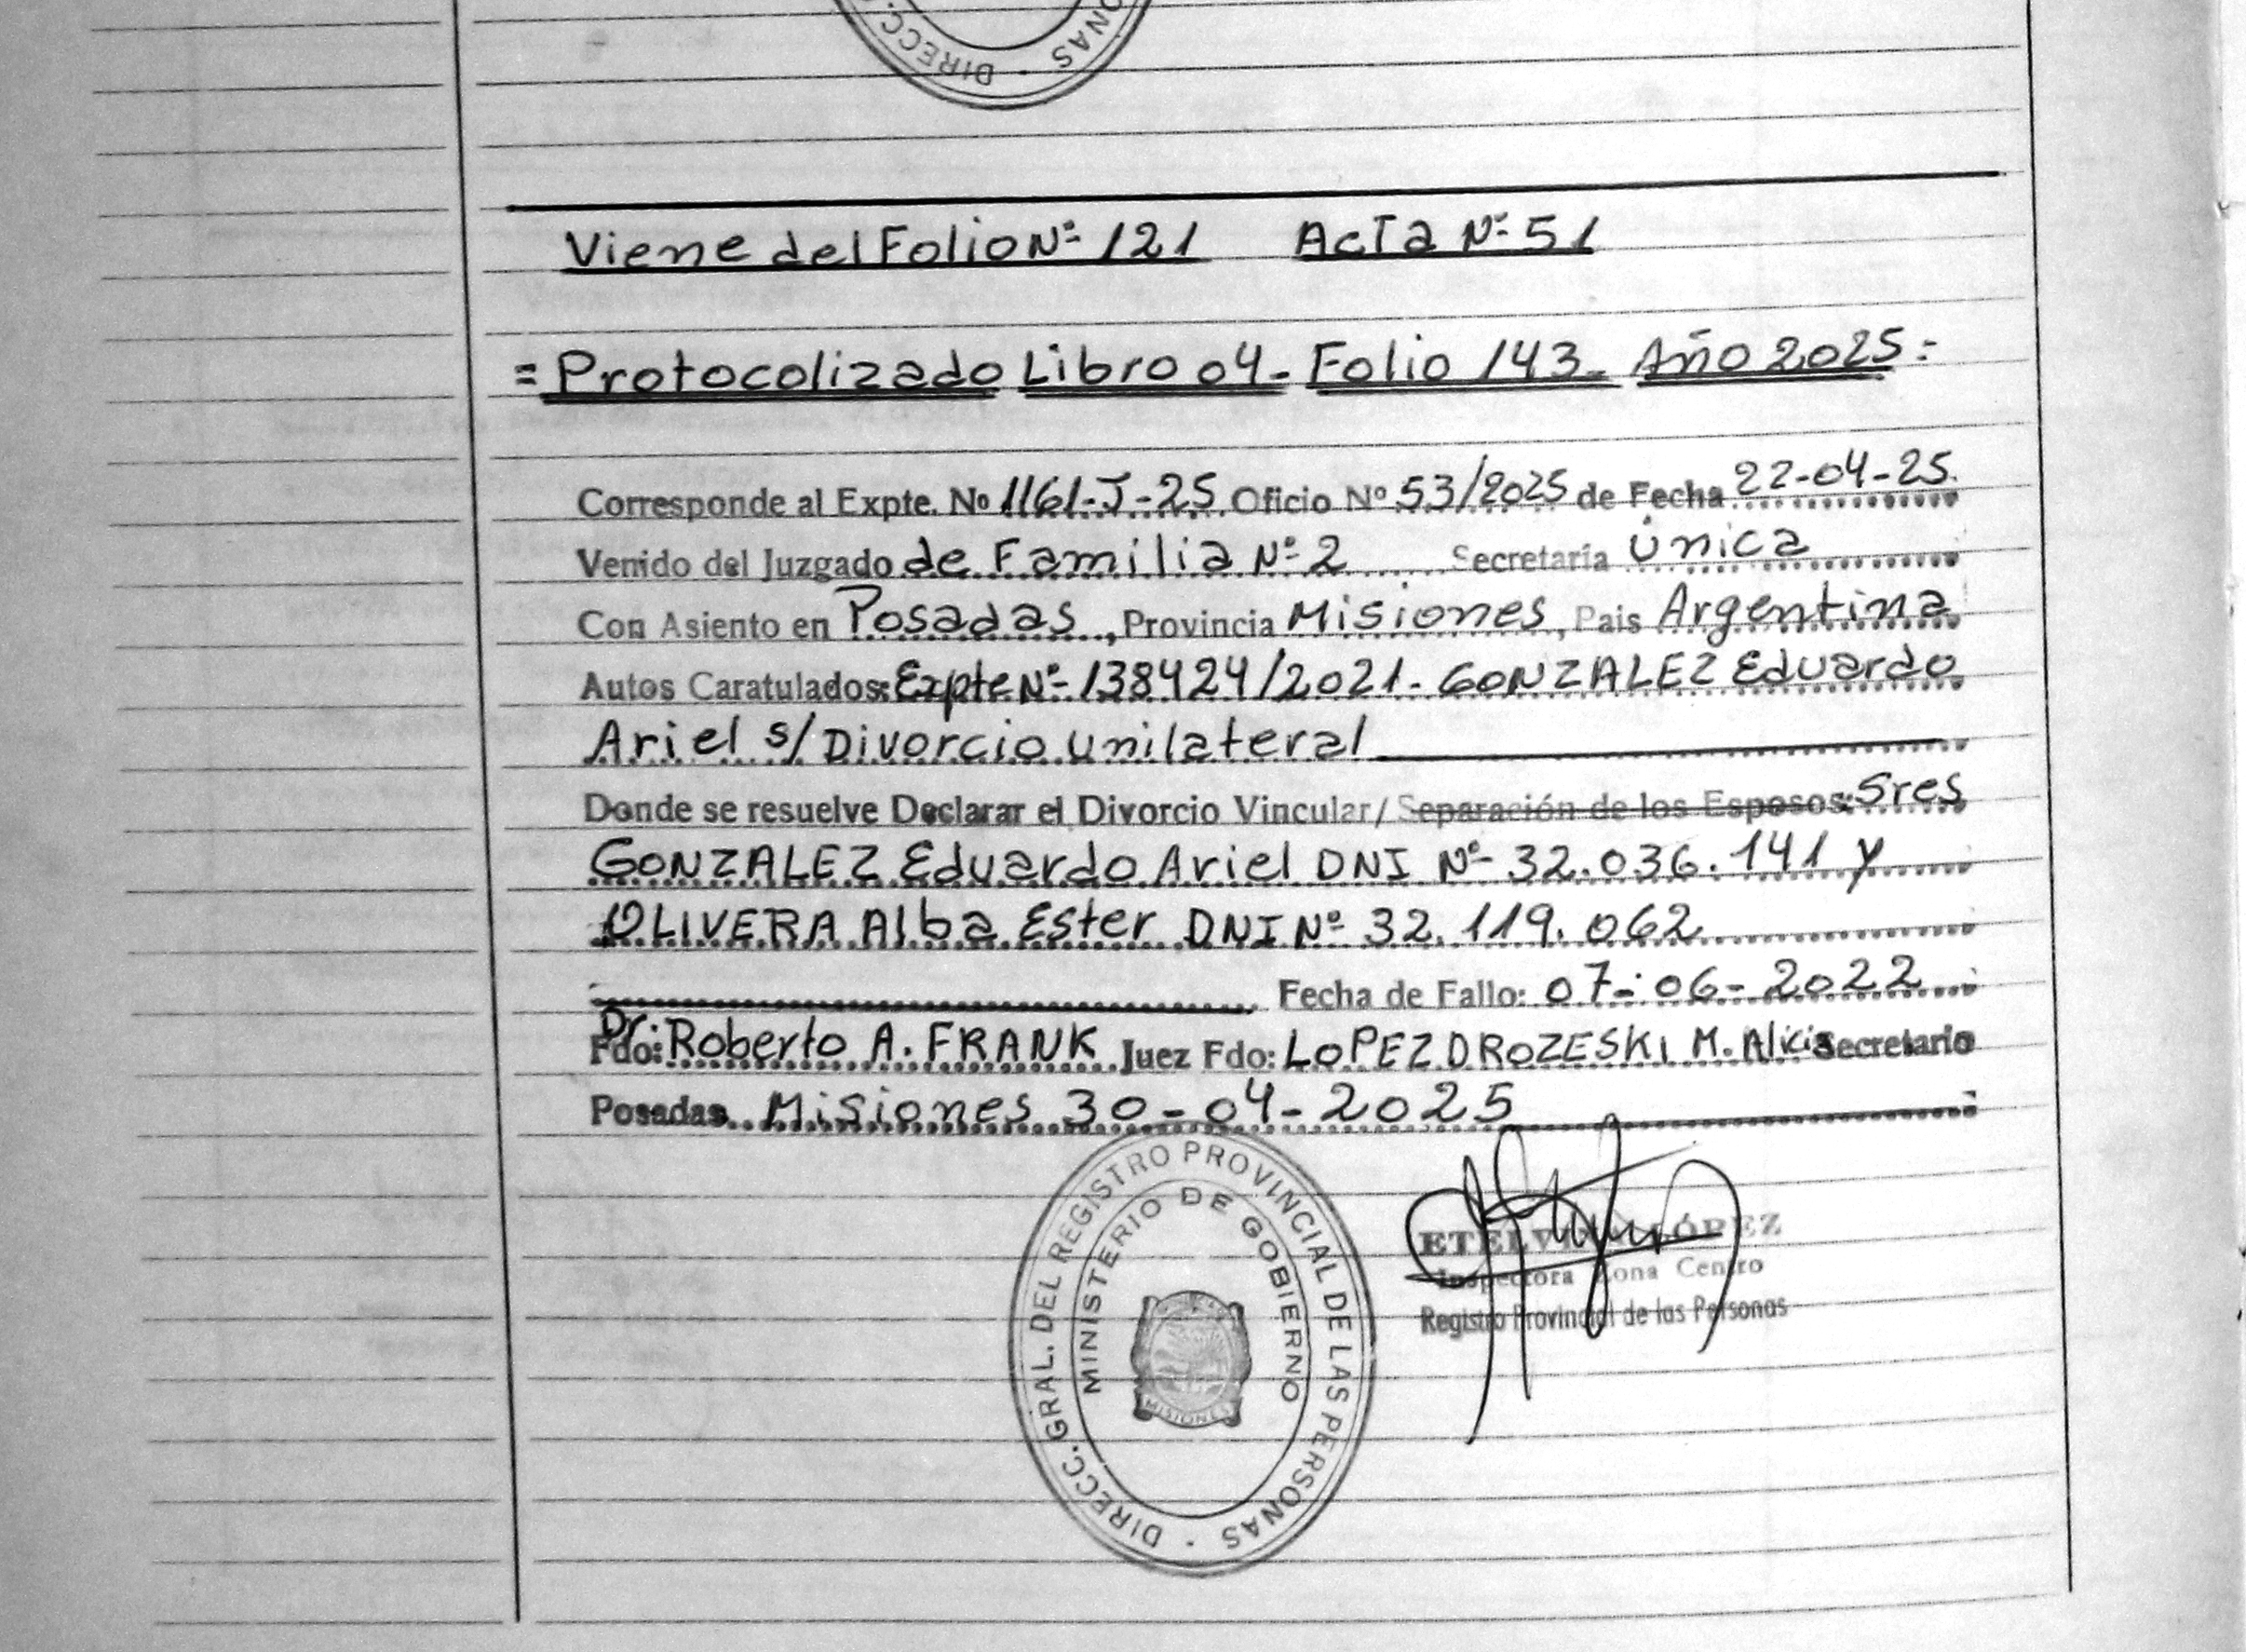 DIRECC. ONAS
Viene del Folio Nº 121 Acta Nº 51
= Protocolizado Libro 04- Folio 143- Año 2025=
Corresponde al Expte. Nº 1161-J-25 Oficio Nº 53/2025 de Fecha 22-04-25
Venido del Juzgado de Familia Nº 2 Secretaría única
Con Asiento en Posadas, Provincia Misiones, Pais Argentina
Autos Caratulados: Expte Nº 138424/2021. GONZALEZ Eduardo
Ariel s/ Divorcio unilateral
Donde se resuelve Declarar el Divorcio Vincular/ Separación de los Esposos: Sres
GONZALEZ Eduardo Ariel DNI Nº 32.036.141 y
OLIVERA Alba Ester DNI Nº 32.119.062
Fecha de Fallo: 07-06-2022
Fdo: Dr. Roberto A. FRANK Juez Fdo: LOPEZ DROZESKI M. Alicia Secretario
Posadas Misiones 30-04-2025
DIRECC. GRAL. DEL REGISTRO PROVINCIAL DE LAS PERSONAS
MINISTERIO DE GOBIERNO
MISIONES
LÓPEZ
Inspectora Zona Centro
Registro Provincial de las Personas